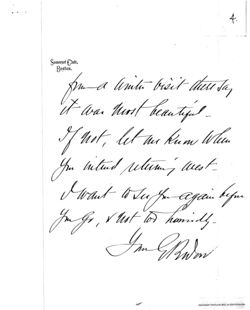 4.
Somerset Club,
Boston.
from a winter visit there say
it was most beautiful.
If not, let me know when
you intend returning west.
I want to see you again before
you go, & not too hurriedly.